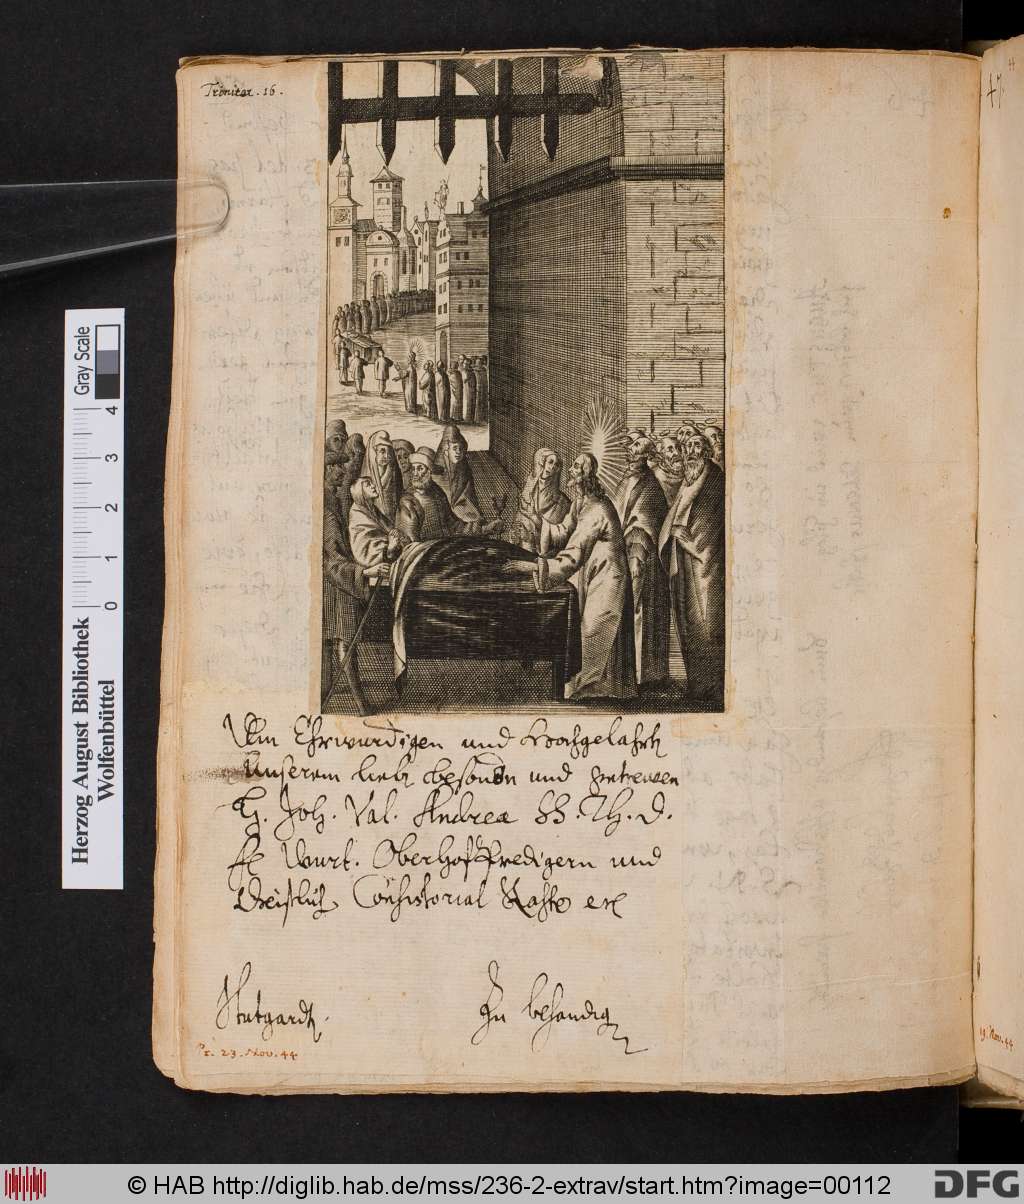 Trinitat. 16.
47.
Dem Ehrwürdigen und Hochgelahrten
Unserem lieb besondern und getrewen
H. Joh. Val. Andreæ SS. Th. D.
Würt. Oberhoff Predigern und
Geistlich Consistorial Rahte etc
Stutgardt.
Zu behändigen
Pr. 23. Nov. 44
19. Nov. 44
Gray Scale
4
3
2
1
0
Herzog August Bibliothek
Wolfenbüttel
© HAB http://diglib.hab.de/mss/236-2-extrav/start.htm?image=00112
DFG